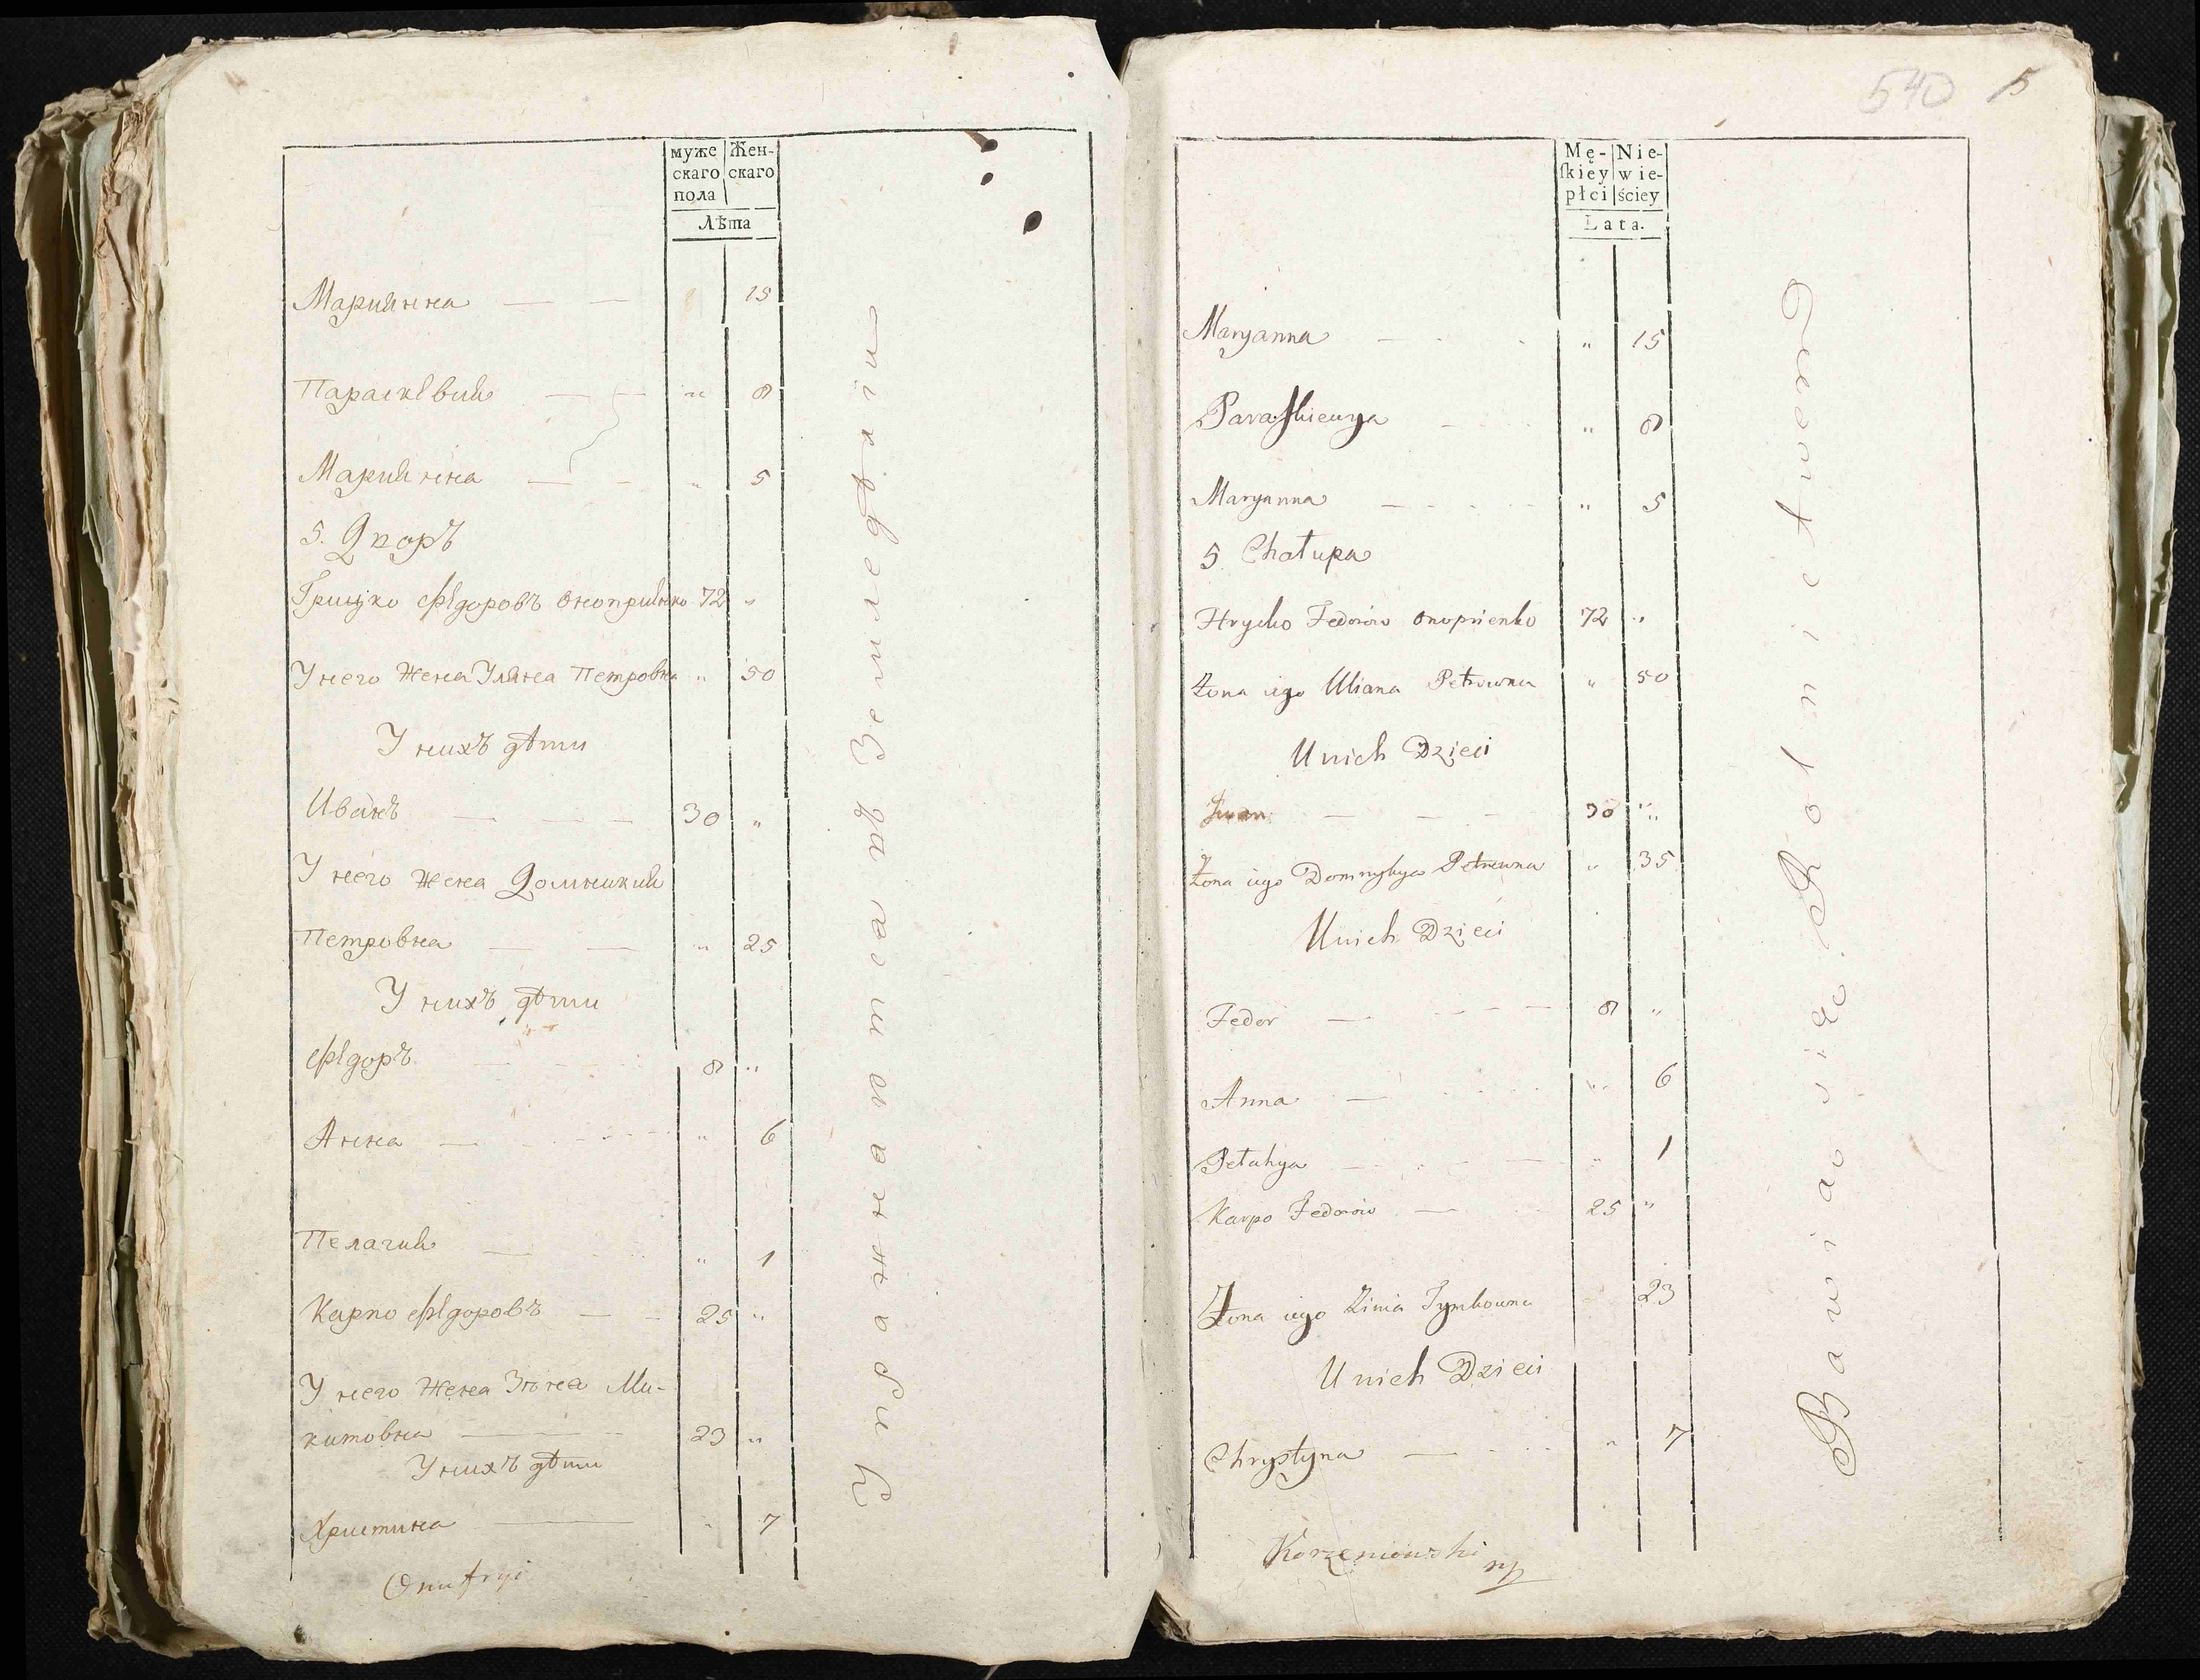 муже Жен-
скаго скаго
пола
Лѣта
Мариянна — — 15
Параскевия — — " 8
Мариянна — - " 5
5. Дворъ
Грицко Федоровъ Оноприенко 72 "
У него Жена Уляна Петровна " 50
У нихъ дѣти
Иванъ — — — 30 "
У него Жена Домникия
Петровна — — " 25
У нихъ дѣти
Федоръ 8 "
Анна — " 6
Пелагия — " 1
Карпо Федоровъ — - 25 "
У него Жена Зѣнea Ми-
китовна — 23 "
У нихъ дѣти
Христина — " 7
Onufryi
Упражняются въ Земледѣлiи
540 15
Mę- Nie-
ſkiey wie-
płci ściey
Lata.
Maryanna — " 15
Paraskiewya " 8
Maryanna — " 5
5. Chałupa
Hrycko Fedorów Onoprienko 72 "
Żona iego Uliana Petrowna " 50
U nich Dzieci
Iwan — — - 30 "
Żona iego Domnykya Petrowna " 35
U nich Dzieci
Fedor — 8 "
Anna — " 6
Pełahya — " 1
Karpo Fedorów — 25 "
Żona iego Zinia 23
U nich Dzieci
Chrystyna — " 7
Korzeniowski
Bawią się Rolnictwem